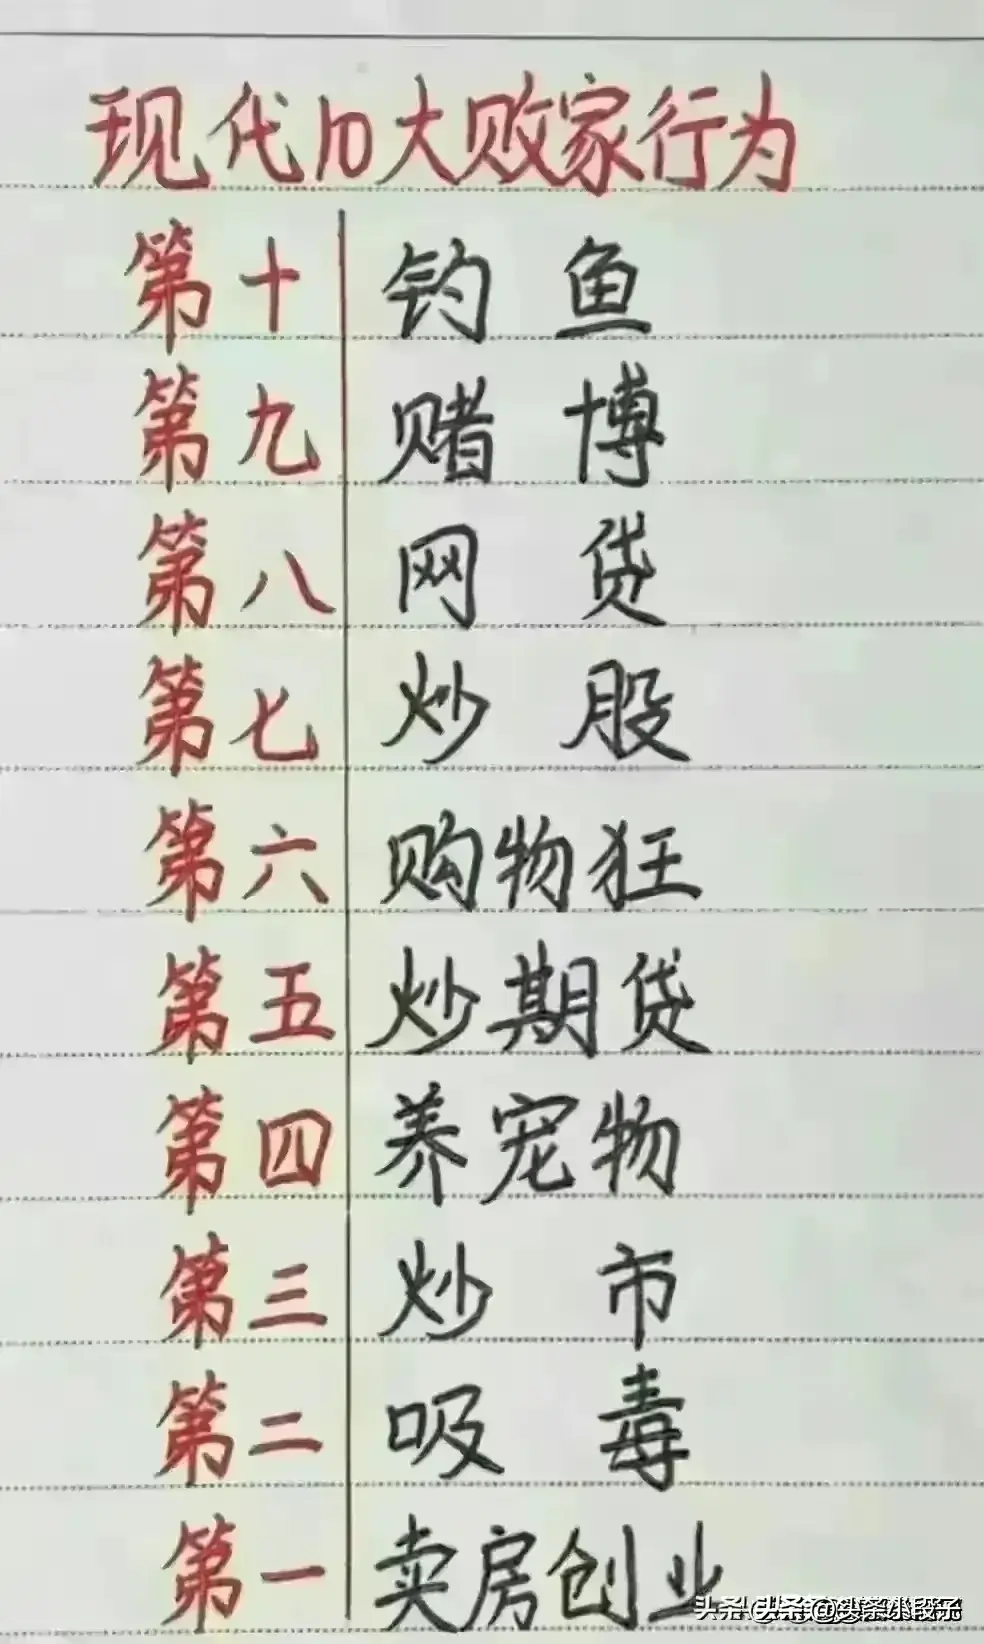 现代10大败家行为
第十 钓鱼
第九 赌博
第八 网贷
第七 炒股
第六 购物狂
第五 炒期贷
第四 养宠物
第三 炒市
第二 吸毒
第一 卖房创业